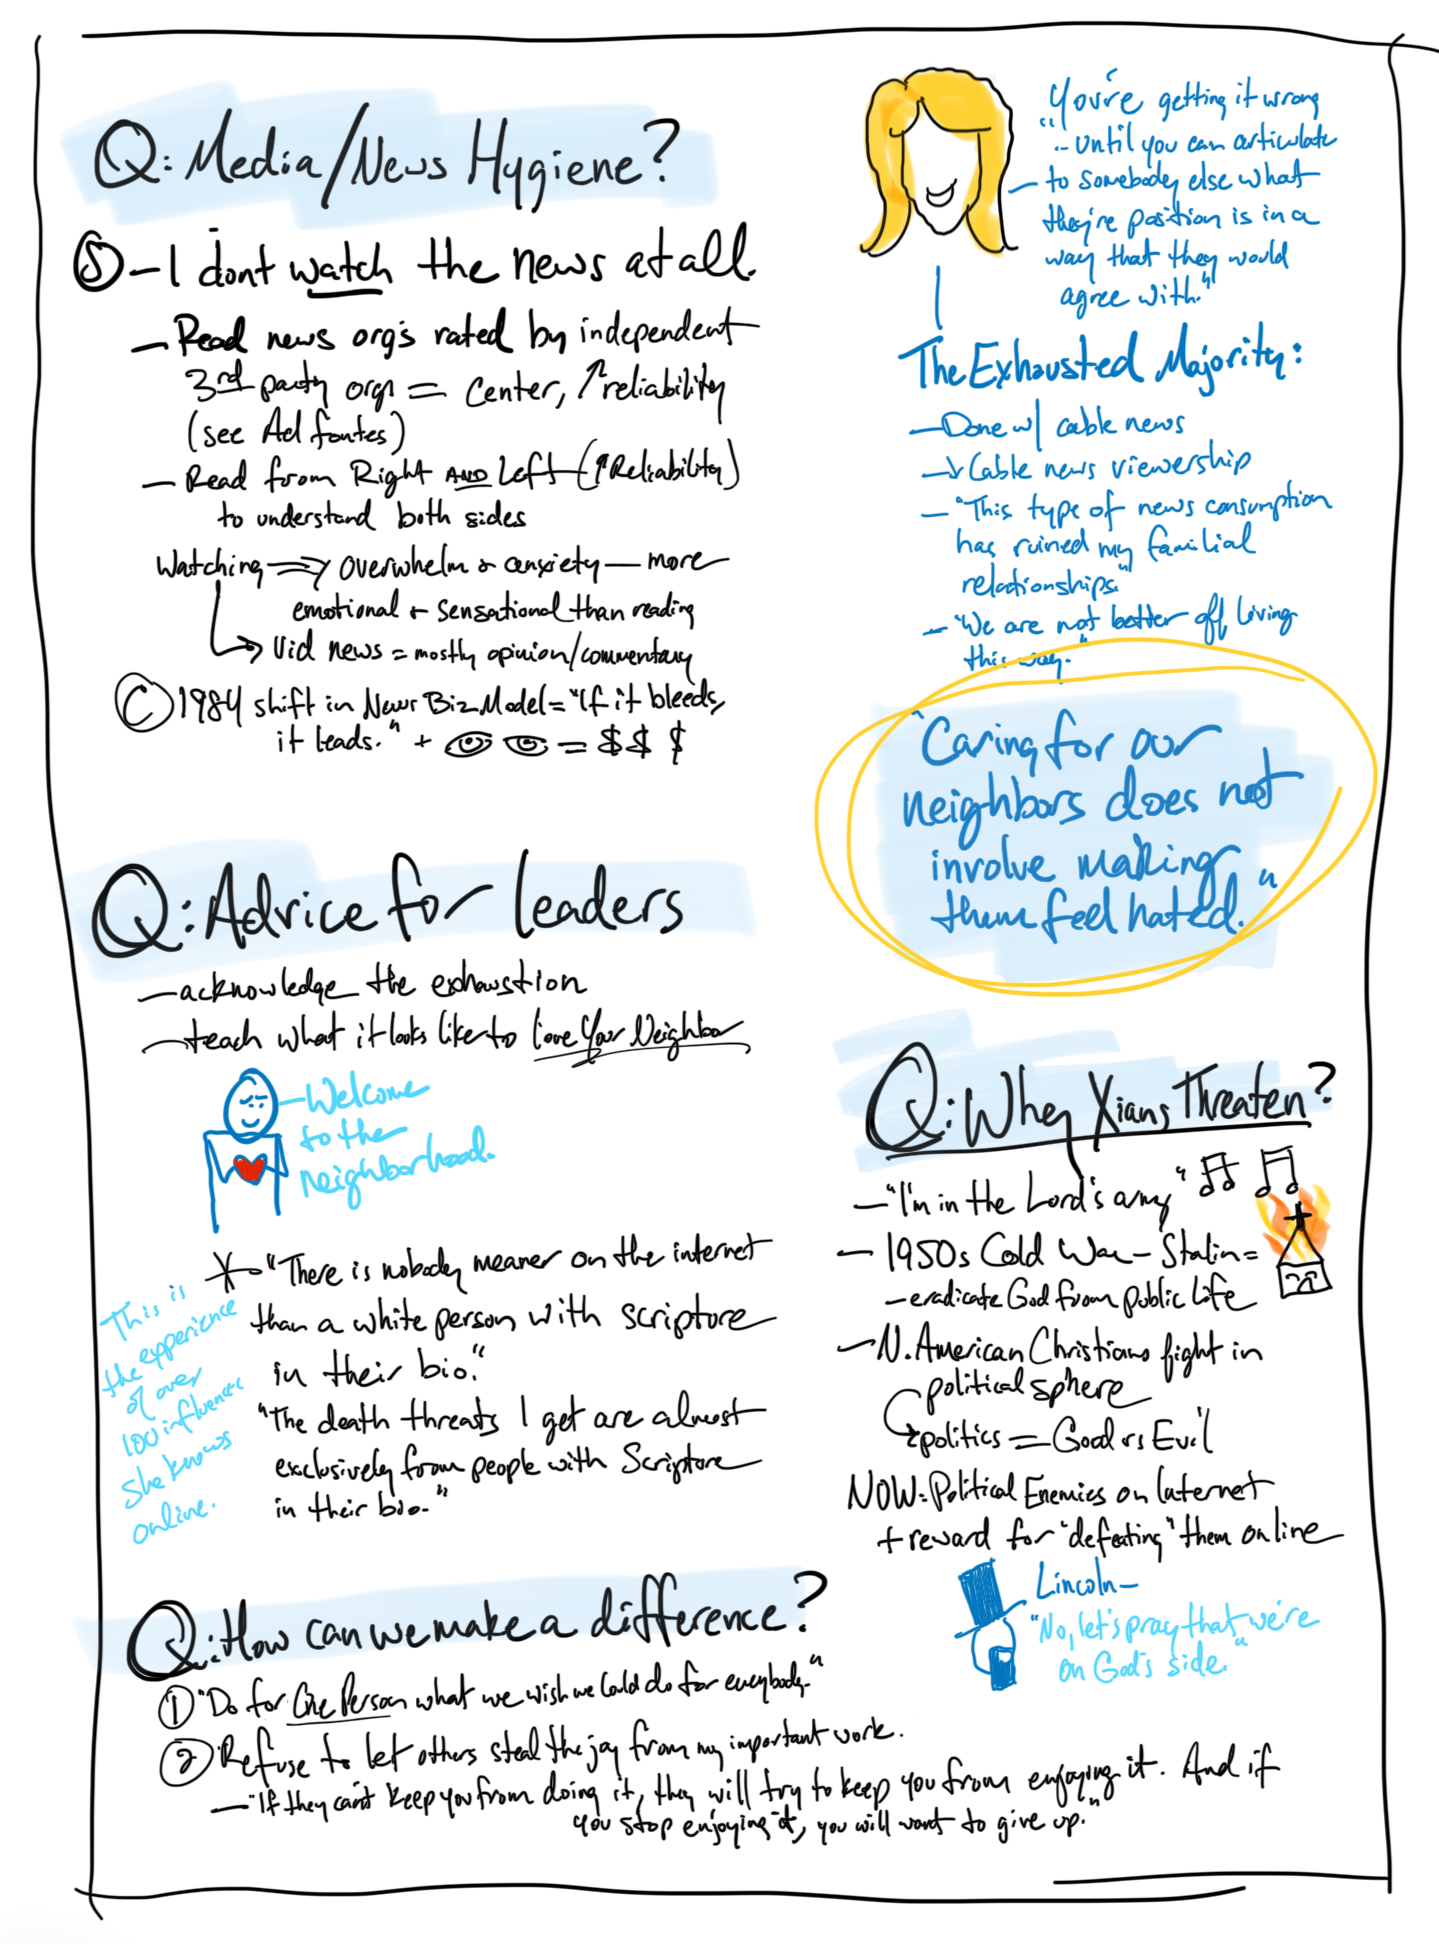 Q: Media/News Hygiene?
S – I dont watch the news at all.
– Read news org's rated by independent
3rd party orgs = center, ↑reliability
(see Ad fontes)
– Read from Right AND Left (↑Reliability)
to understand both sides
Watching ⇒ overwhelm & anxiety — more
emotional + sensational than reading
→ Vid news = mostly opinion/commentary
C 1984 shift in News Biz Model = "If it bleeds,
it leads." + = $ $ $
Q: Advice for leaders
– acknowledge the exhaustion
– teach what it looks like to Love Your Neighbor
– Welcome
to the
neighborhood.
* "There is nobody meaner on the internet
than a white person with scripture
in their bio."
"The death threats I get are almost
exclusively from people with Scripture
in their bio."
This is
the experience
of over
100 influencers
she knows
online.
"You're getting it wrong
.. until you can articulate
to somebody else what
they're position is in a
way that they would
agree with."
The Exhausted Majority:
– Done w/ cable news
– ↓ Cable news viewership
– "This type of news consumption
has ruined my familial
relationships."
– "We are not better off living
this way."
"Caring for our
neighbors does not
involve making
them feel hated."
Q: Why Xians Threaten?
– "I'm in the Lord's army" ♫ ♫
– 1950s Cold War – Stalin =
– eradicate God from public life
– N. American Christians fight in
political sphere
→ politics = Good vs Evil
NOW: Political Enemies on Internet
+ reward for "defeating" them online
Lincoln –
"No, let's pray that we're
on God's side."
Q: How can we make a difference?
① "Do for One Person what we wish we could do for everybody."
② Refuse to let others steal the joy from my important work.
– "If they can't keep you from doing it, they will try to keep you from enjoying it. And if
you stop enjoying it, you will want to give up."